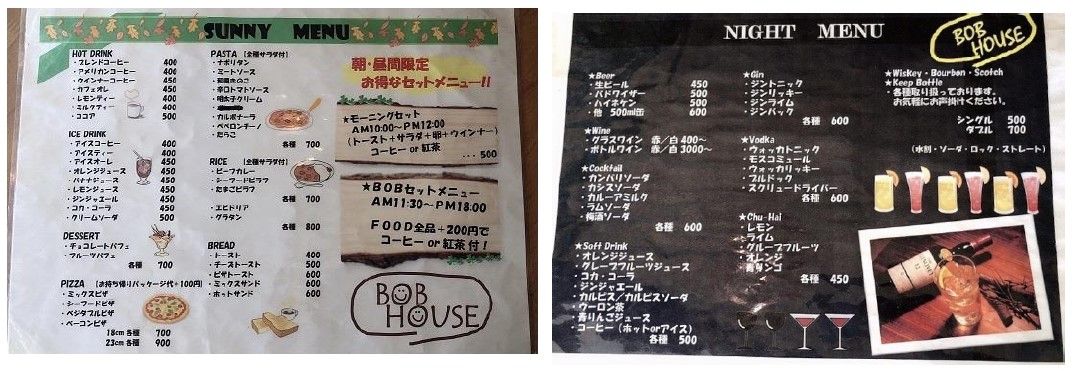 SUNNY MENU
HOT DRINK
・ブレンドコーヒー 400
・アメリカンコーヒー 400
・ウインナーコーヒー 450
・カフェオレ 450
・レモンティー 400
・ミルクティー 400
・ココア 500
ICE DRINK
・アイスコーヒー 400
・アイスティー 400
・アイスオーレ 450
・オレンジジュース 450
・バナナジュース 450
・レモンジュース 450
・ジンジャエール 450
・コカ・コーラ 450
・クリームソーダ 500
DESSERT
・チョコレートパフェ
・フルーツパフェ
各種 700
PIZZA [お持ち帰りパッケージ代+100円]
・ミックスピザ
・シーフードピザ
・ベジタブルピザ
・ベーコンピザ
18cm 各種 700
23cm 各種 900
PASTA [全種サラダ付]
・ナポリタン
・ミートソース
・和風きのこ
・辛口トマトソース
・明太子クリーム
・カルボナーラ
・ペペロンチーノ
・たらこ
各種 700
RICE [全種サラダ付]
・ビーフカレー
・シーフードピラフ
・たまごピラフ
各種 700
・エビドリア
・グラタン
各種 800
BREAD
・トースト 400
・チーズトースト 500
・ピザトースト 600
・ミックスサンド 600
・ホットサンド 600
朝・昼間限定
お得なセットメニュー!!
★モーニングセット
AM10:00~PM12:00
(トースト+サラダ+卵+ウインナー)
コーヒー or 紅茶
...500
★BOBセットメニュー
AM11:30~PM18:00
FOOD全品+200円で
コーヒー or 紅茶付!
BOB
HOUSE
NIGHT MENU
BOB
HOUSE
★Beer
・生ビール 450
・バドワイザー 500
・ハイネケン 500
・他 500ml缶 600
★Wine
・グラスワイン 赤/白 400~
・ボトルワイン 赤/白 3000~
★Cocktail
・カンパリソーダ
・カシスソーダ
・カルーアミルク
・ラムソーダ
・梅酒ソーダ
各種 600
★Soft Drink
・オレンジジュース
・グレープフルーツジュース
・コカ・コーラ
・ジンジャエール
・カルピス/カルピスソーダ
・ウーロン茶
・青りんごジュース
・コーヒー(ホットorアイス)
各種 500
★Gin
・ジントニック
・ジンリッキー
・ジンライム
・ジンバック
各種 600
★Vodka
・ウォッカトニック
・モスコミュール
・ウォッカリッキー
・ブルドック
・スクリュードライバー
各種 600
★Chu-Hai
・レモン
・ライム
・グループフルーツ
・オレンジ
・青タンゴ
各種 450
★Wiskey・Bourbon・Scotch
★Keep Bottle
・各種取り扱っております。
お気軽にお声掛けください。
シングル 500
ダブル 700
(水割・ソーダ・ロック・ストレート)